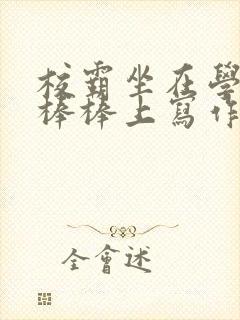 校霸坐在學
棒棒上寫作
全會述